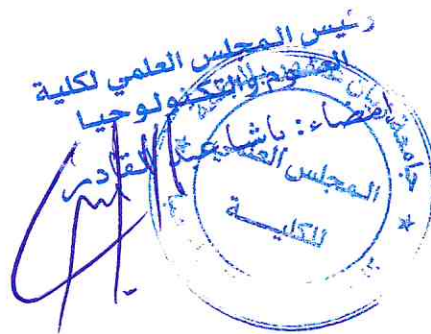 رئيس المجلس العلمي لكلية
العلوم والتكنولوجيا
امضاء: باشا عبد القادر
جامعة
المجلس العلمي
للكليــة